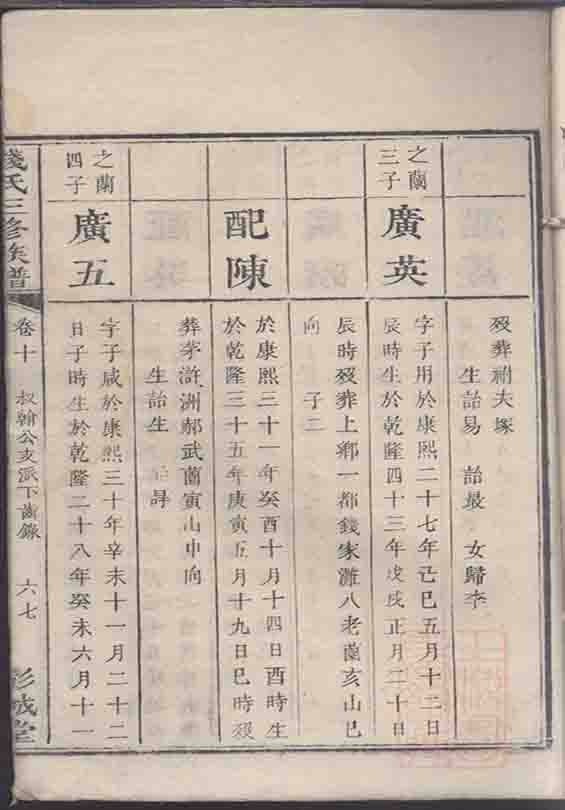 歿葬祔夫塚
生詒易 詒最 女歸李
之蘭
三子
廣英
字子用於康熙二十七年己巳五月十二日
辰時生於乾隆四十三年戊戌正月二十日
辰時歿葬上鄉一都錢家灘八老蘭亥山巳
向 子二
配陳
於康熙三十一年癸酉十月十四日酉時生
於乾隆三十五年庚寅五月十九日巳時歿
葬茅滸洲郝武蘭寅山申向
生詒生 詒
之蘭
四子
廣五
字子咸於康熙三十年辛未十一月二十二
日子時生於乾隆二十八年癸未六月十一
錢氏三修族譜
卷十
叔翰公支派下齒錄
六七
彭城堂